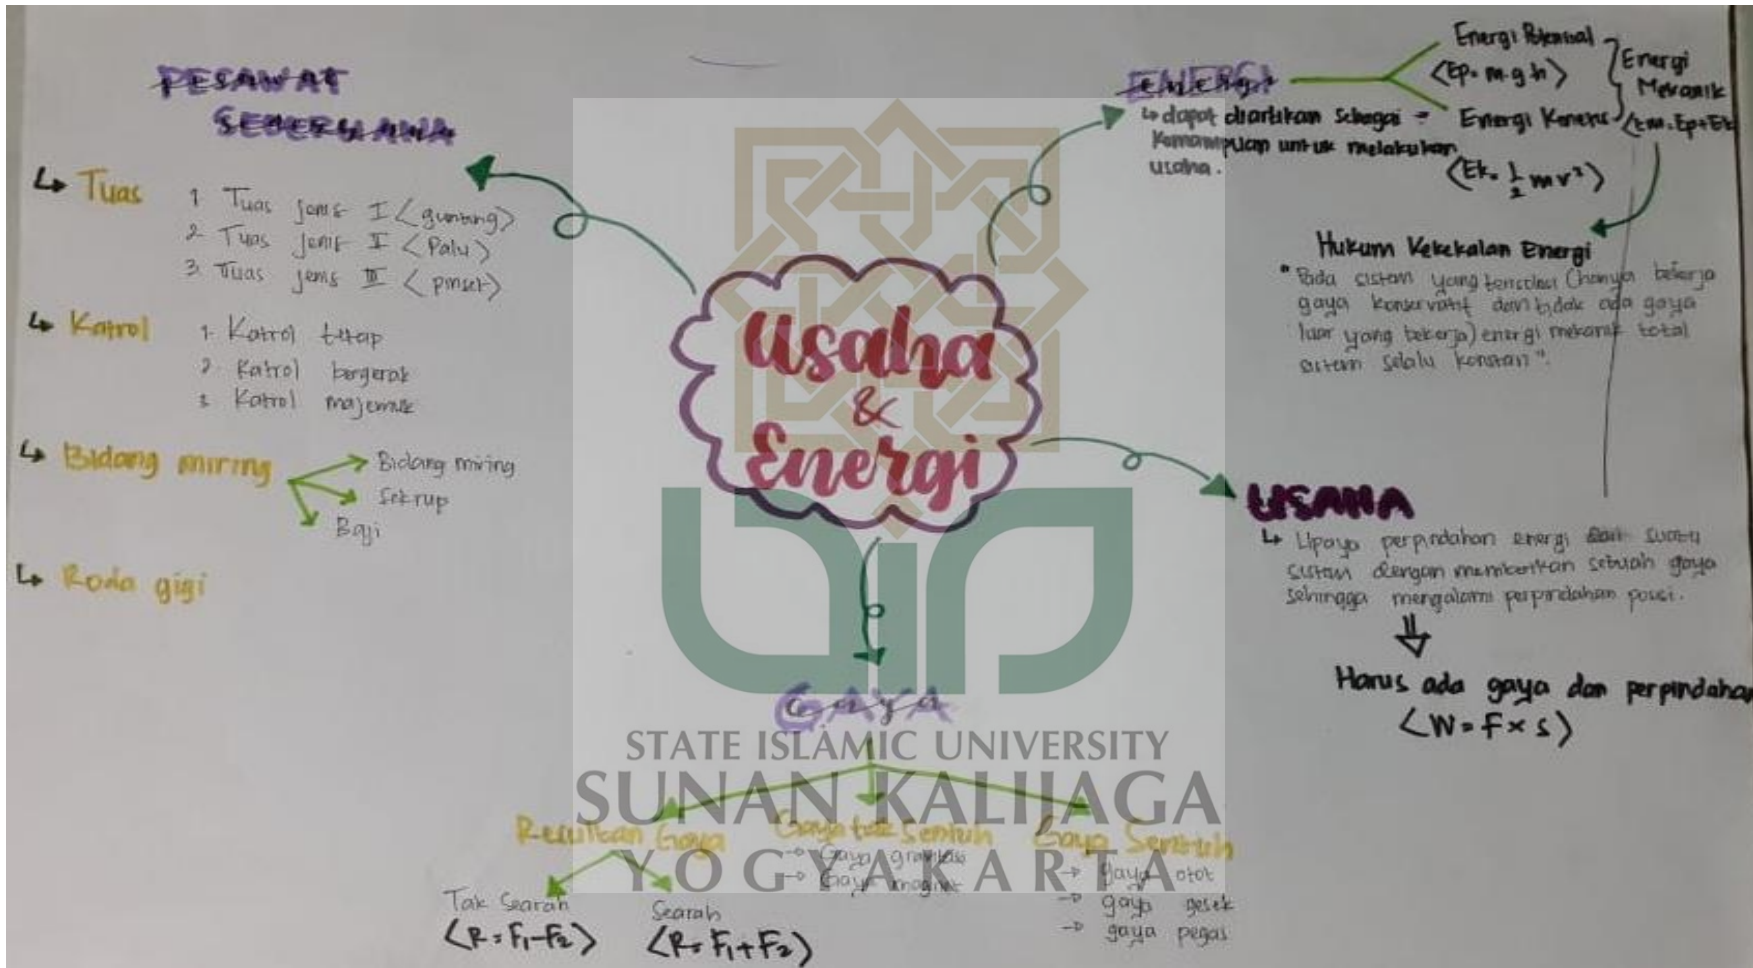 PESAWAT
SEDERHANA
↳ Tuas
1 Tuas jenis I <gunting>
2 Tuas jenis II <Palu>
3. Tuas jenis III <pinset>
↳ Katrol
1. Katrol tetap
2. Katrol bergerak
3 Katrol majemuk
↳ Bidang miring
Bidang miring
Sekrup
Baji
↳ Roda gigi
Usaha
&
Energi
ENERGI
↳ dapat diartikan sebagai
Kemampuan untuk melakukan
usaha.
Energi Potensial
<Ep= m.g.h>
Energi Kinetis
<Ek= 1/2 mv²>
Energi
Mekanik
<Em=Ep+Ek
Hukum Kekekalan Energi
"Pada sistem yang terisolasi (hanya bekerja
gaya konservatif dan tidak ada gaya
luar yang bekerja) energi mekanik total
sistem selalu konstan".
USAHA
↳ Upaya perpindahan energi dari suatu
sistem dengan memberikan sebuah gaya
sehingga mengalami perpindahan posisi.
⇓
Harus ada gaya dan perpindahan
<W=F×s>
GAYA
Resultan Gaya
Tak Searah
<R=F₁-F₂>
Searah
<R=F₁+F₂>
Gaya tak Sentuh
→ Gaya gravitasi
→ Gaya magnet
Gaya Sentuh
→ gaya otot
→ gaya gesek
→ gaya pegas
STATE ISLAMIC UNIVERSITY
SUNAN KALIJAGA
YOGYAKARTA